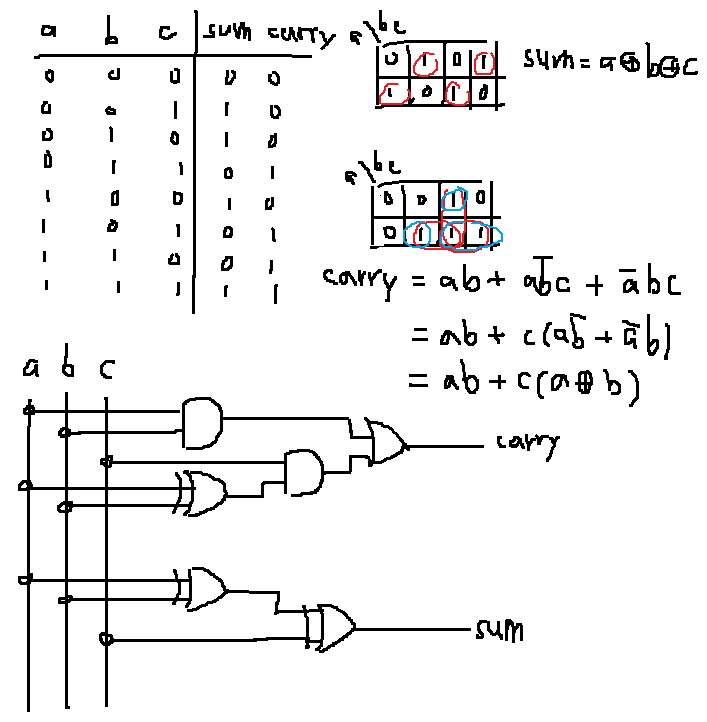 a b c sum carry
0 0 0 0 0
0 0 1 1 0
0 1 0 1 0
0 1 1 0 1
1 0 0 1 0
1 0 1 0 1
1 1 0 0 1
1 1 1 1 1
a\bc
0 1 0 1
1 0 1 0
sum = a⊕b⊕c
a\bc
0 0 1 0
0 1 1 1
carry = ab + ab̅c + a̅bc
= ab + c(ab̅ + a̅b)
= ab + c(a⊕b)
a b c
carry
sum